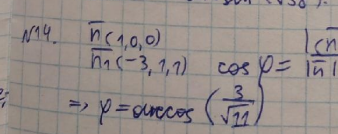 №14. n̅(1,0,0)
n̅₁(-3,1,1) cos φ = |(n̅
|n̅|
⇒ φ = arccos (3/√11)